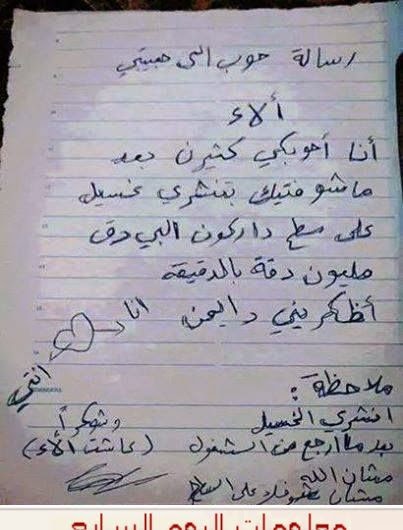 رسالة حوب الى حبيبتي
ألاء
أنا أحوبكي كثيرن بعد
ما شوفتيك بتنشري غسيل
على سطح داركون البي دق
مليون دقة بالدقيقة
أظاكريني دايمن
انا
انتي
ملاحظة:
انشري الغسيل وشوكراً
بعد ما ارجع من الشغول (عاشت ألاء)
مشان الله
مشان شوفك على السطح
معلومات اليوم السابع